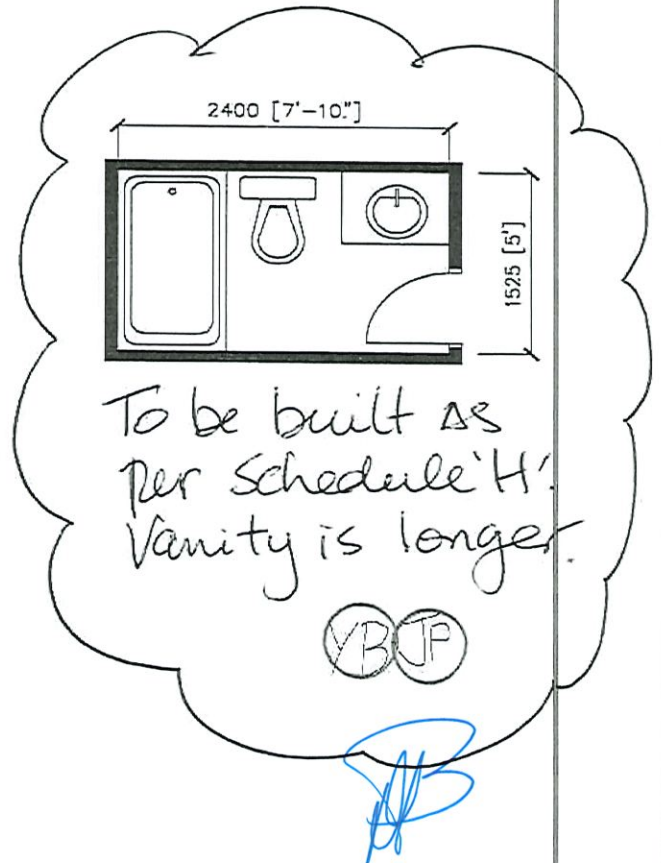 2400 [7'-10"]
1525 [5']
To be built as
per Schedule 'H'.
Vanity is longer.
YB JP